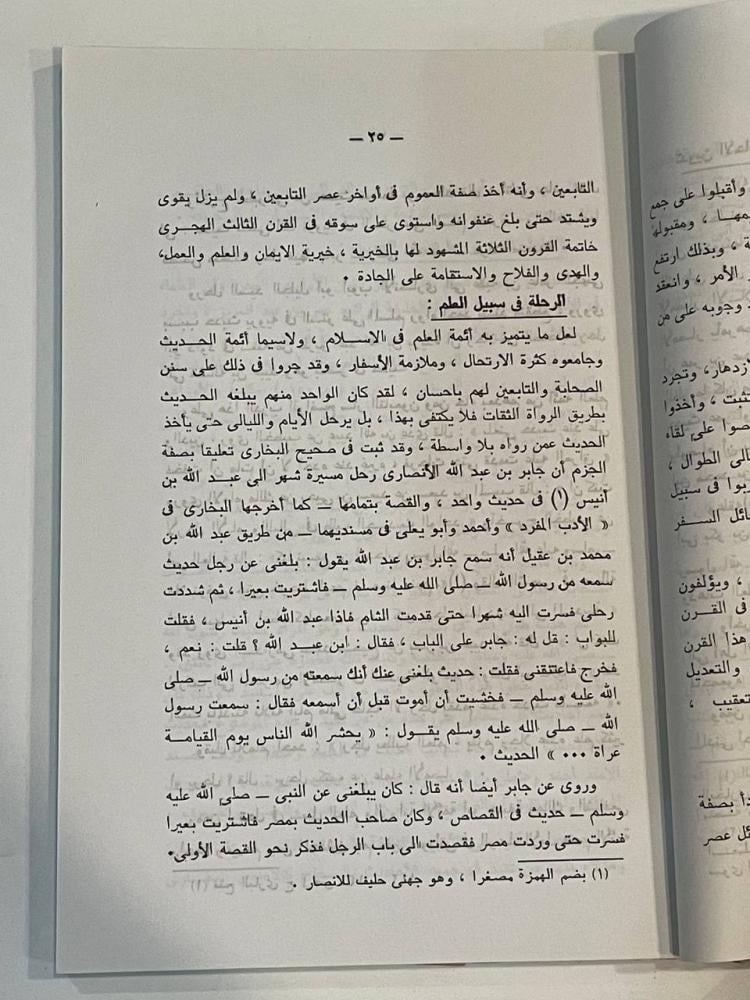 — ٢٥ —
التابعين ، وأنه أخذ صفة العموم فى أواخر عصر التابعين ، ولم يزل يقوى
ويشتد حتى بلغ عنفوانه واستوى على سوقه فى القرن الثالث الهجرى
خاتمة القرون الثلاثة المشهود لها بالخيرية ، خيرية الايمان والعلم والعمل،
والهدى والفلاح والاستقامة على الجادة ٠
الرحلة فى سبيل العلم :
لعل ما يتميز به أئمة العلم فى الاسلام ، ولاسيما أئمة الحديث
وجامعوه كثرة الارتحال ، وملازمة الأسفار ، وقد جروا فى ذلك على سنن
الصحابة والتابعين لهم باحسان ، لقد كان الواحد منهم يبلغه الحديث
بطريق الرواة الثقات فلا يكتفى بهذا ، بل يرحل الأيام والليالى حتى يأخذ
الحديث عمن رواه بلا واسطة ، وقد ثبت فى صحيح البخارى تعليقا بصفة
الجزم أن جابر بن عبد الله الأنصارى رحل مسيرة شهر الى عبد الله بن
أنيس (١) فى حديث واحد ، والقصة بتمامها — كما أخرجها البخارى فى
« الأدب المفرد » وأحمد وأبو يعلى فى مسنديهما — من طريق عبد الله بن
محمد بن عقيل أنه سمع جابر بن عبد الله يقول : بلغنى عن رجل حديث
سمعه من رسول الله — صلى الله عليه وسلم — فاشتريت بعيرا ، ثم شددت
رحلى فسرت اليه شهرا حتى قدمت الشام فاذا عبد الله بن أنيس ، فقلت
للبواب : قل له : جابر على الباب ، فقال : ابن عبد الله ؟ قلت : نعم ،
فخرج فاعتنقنى فقلت : حديث بلغنى عنك أنك سمعته من رسول الله — صلى
الله عليه وسلم — فخشيت أن أموت قبل أن أسمعه فقال : سمعت رسول
الله — صلى الله عليه وسلم يقول : « يحشر الله الناس يوم القيامة
عراة ٠٠٠ » الحديث ٠
وروى عن جابر أيضا أنه قال : كان يبلغنى عن النبى — صلى الله عليه
وسلم — حديث فى القصاص ، وكان صاحب الحديث بمصر فاشتريت بعيرا
فسرت حتى وردت مصر فقصدت الى باب الرجل فذكر نحو القصة الأولى٠
(١) بضم الهمزة مصغرا ، وهو جهنى حليف للانصار ٠
وأقبلوا على جمع
، ومقبولها
، وبذلك ارتفع
الأمر ، وانعقد
وجوبه على من
، وتجرد
، وأخذوا
على لقاء
الطوال ،
فى سبيل
السفر
، ويؤلفون
فى القرن
هذا القرن
والتعديل
،
بصفة
عصر